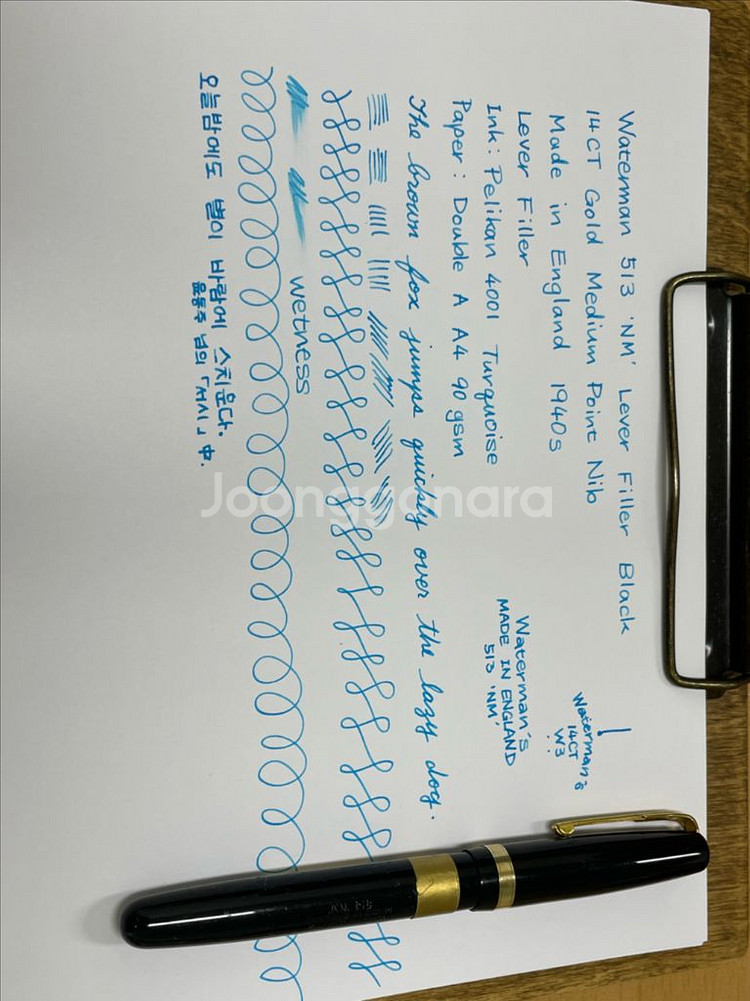 Waterman 513 'NM' Lever Filler Black
14CT Gold Medium Point Nib
Made in England 1940s
Lever Filler
Ink: Pelikan 4001 Turquoise
Paper: Double A A4 90gsm
Waterman's
14CT
W3
Waterman's
MADE IN ENGLAND
513 'NM'
The brown fox jumps quickly over the lazy dog.
wetness
오늘밤에도 별이 바람에 스치운다.
윤동주 님의 「서시」 中.
Joonggonara